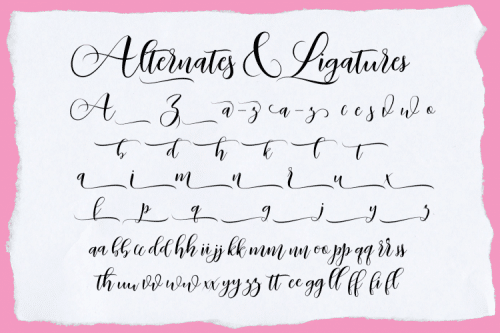 Alternates & Ligatures
A Z a-z a-z c e s v w o
b d h k l t
a i m n r u x
f p q g j y z
aa bb cc dd hh ii jj kk mm nn oo pp qq rr ss
th uu vv ww xx yy zz tt ee gg ll ff fi fl